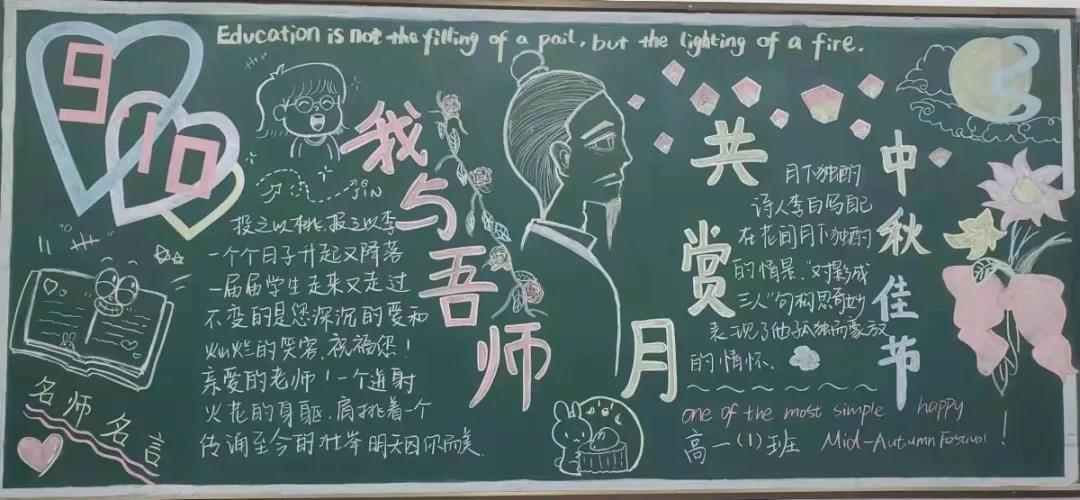 Education is not the filling of a pail, but the lighting of a fire.
910
我与吾师
JIN
投之以桃，报之以李
一个个日子升起又降落
一届届学生走来又走过
不变的是您深沉的爱和
灿烂的笑容，祝福您！
亲爱的老师！一个迸射
火花的身躯，肩挑着一个
传诵至今的壮举 明天因你而美.
名师名言
共赏月
中秋佳节
月下独酌
诗人李白写自己
在花间月下独酌
的情景。"对影成
三人"句构思奇妙
表现了他孤独而豪放
的情怀.
one of the most simple happy
高一(1)班 Mid-Autumn Festival!